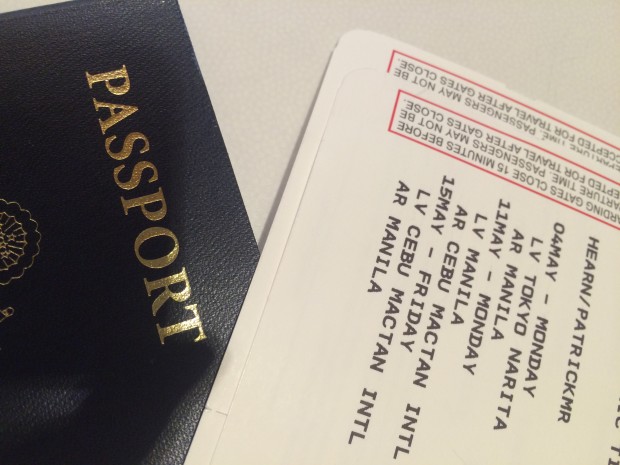 PASSPORT
ARDING GATES CLOSE 15 MINUTES BEFORE
ARTURE TIME. PASSENGERS MAY NOT BE
EPTED FOR TRAVEL AFTER GATES CLOSE.
TIME. PASSENGERS MAY NOT BE
CCEPTED FOR TRAVEL AFTER GATES CLOSE.
HEARN/PATRICKMR
04MAY - MONDAY
LV TOKYO NARITA
AR MANILA
11MAY - MONDAY
LV MANILA
AR CEBU MACTAN INTL
15MAY - FRIDAY
LV CEBU MACTAN INTL
AR MANILA